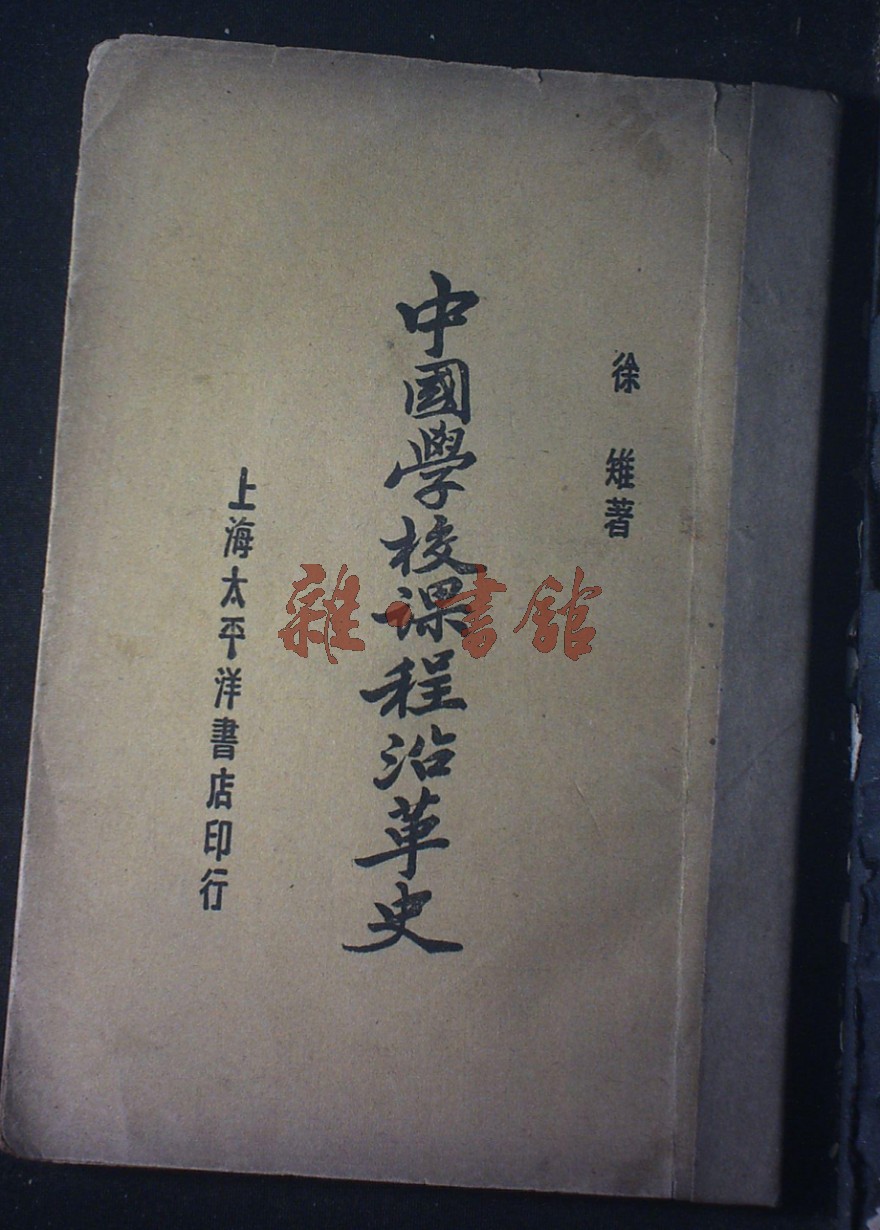 徐雉著
中國學校课程沿革史
上海太平洋書店印行
雜·書館